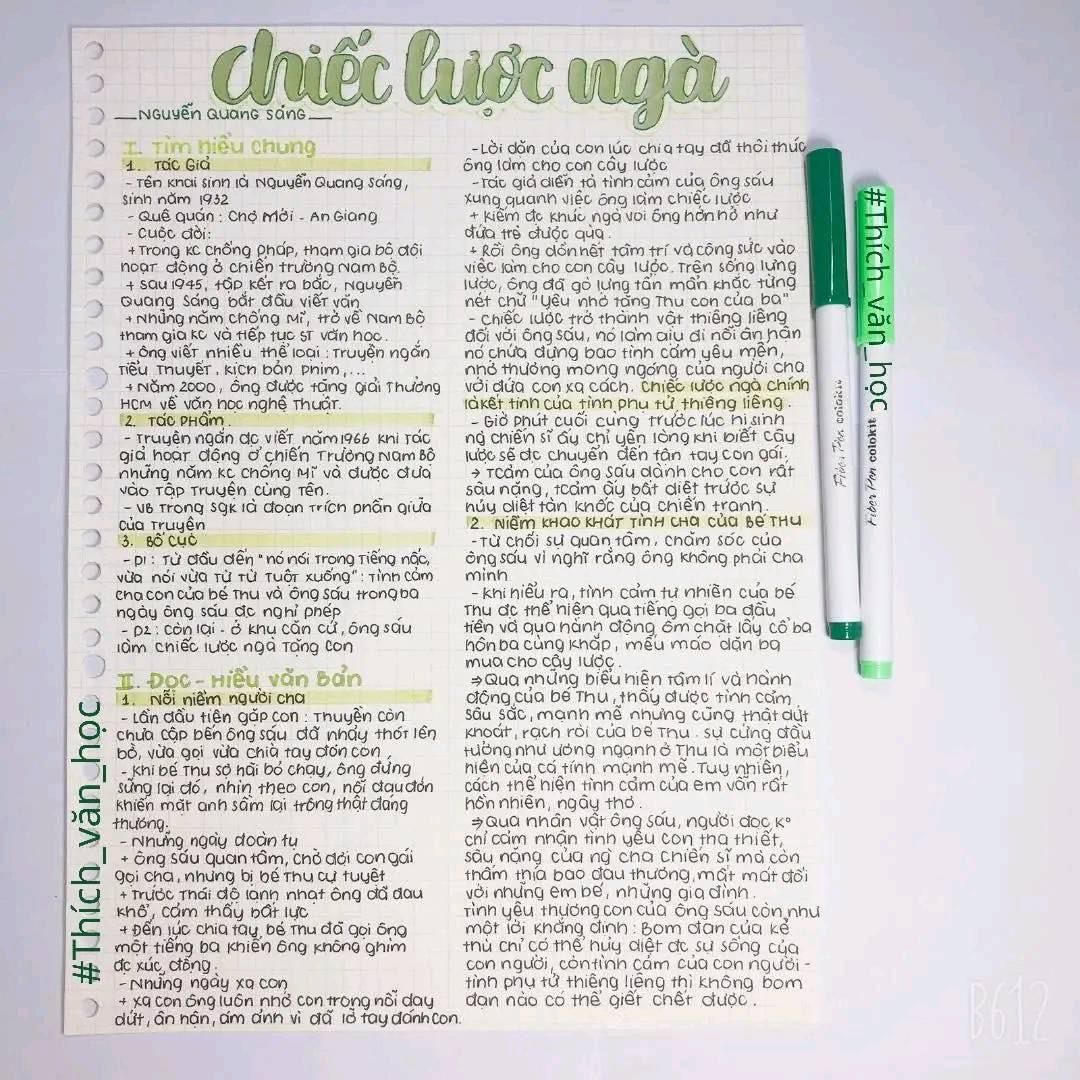 chiếc lược ngà
Nguyễn Quang Sáng
I. Tìm hiểu chung
1. Tác Giả
- Tên khai sinh là Nguyễn Quang Sáng,
sinh năm 1932
- Quê quán: Chợ Mới - An Giang
- Cuộc đời:
+ Trong KC chống Pháp, tham gia bộ đội
hoạt động ở chiến trường Nam Bộ.
+ Sau 1945, tập kết ra bắc, Nguyễn
Quang Sáng bắt đầu viết văn
+ Những năm chống Mĩ, trở về Nam Bộ
tham gia KC và tiếp tục ST văn học.
+ Ông viết nhiều thể loại: Truyện ngắn
Tiểu Thuyết, kịch bản phim,...
+ Năm 2000, ông được tặng giải Thưởng
HCM về văn học nghệ Thuật.
2. Tác phẩm.
- Truyện ngắn đc viết năm 1966 khi tác
giả hoạt động ở chiến Trường Nam Bộ
những năm KC chống Mĩ và được đưa
vào Tập Truyện cùng tên.
- VB trong sgk là đoạn trích phần giữa
của Truyện
3. Bố cục
- p1: Từ đầu đến "nó nói trong tiếng nấc,
vừa nói vừa từ từ tuột xuống": Tình cảm
cha con của bé Thu và ông Sáu trong ba
ngày ông Sáu đc nghỉ phép
- p2: còn lại - ở khu căn cứ, ông Sáu
làm chiếc lược ngà tặng con
II. Đọc - Hiểu văn bản
1. Nỗi niềm người cha
- Lần đầu tiên gặp con: Thuyền còn
chưa cập bến ông Sáu đã nhảy thót lên
bờ, vừa gọi vừa chìa tay đón con
- Khi bé Thu sợ hãi bỏ chạy, ông đứng
sững lại đó, nhìn theo con, nỗi đau đớn
khiến mặt anh sầm lại trông thật đáng
thương.
- Những ngày đoàn tụ
+ Ông Sáu quan tâm, chờ đợi con gái
gọi cha, nhưng bị bé Thu cự tuyệt
+ Trước Thái độ lạnh nhạt ông đã đau
khổ, cảm thấy bất lực
+ Đến lúc chia tay, bé Thu đã gọi ông
một tiếng ba khiến ông không ghìm
đc xúc động.
- Những ngày xa con
+ xa con ông luôn nhớ con trong nỗi day
dứt, ân hận, ám ảnh vì đã lỡ tay đánh con.
- Lời dặn của con lúc chia tay đã thôi thúc
ông làm cho con cây lược
- Tác giả diễn tả tình cảm của ông Sáu
xung quanh việc ông làm chiếc lược
+ Kiếm đc khúc ngà voi ông hớn hở như
đứa trẻ được quà.
+ Rồi ông dồn hết tâm trí và công sức vào
việc làm cho con cây lược. Trên sống lưng
lược, ông đã gò lưng tẩn mẩn khắc từng
nét chữ "Yêu nhớ tặng Thu con của ba"
- Chiếc lược trở thành vật thiêng liêng
đối với ông Sáu, nó làm dịu đi nỗi ân hận
nó chứa đựng bao tình cảm yêu mến,
nhớ thương mong ngóng của người cha
với đứa con xa cách. Chiếc lược ngà chính
là kết tinh của tình phụ tử thiêng liêng.
- Giờ phút cuối cùng trước lúc hi sinh
ng chiến sĩ ấy chỉ yên lòng khi biết cây
lược sẽ đc chuyển đến tận tay con gái.
→ Tcảm của ông Sáu dành cho con rất
sâu nặng, tcảm ấy bất diệt trước sự
hủy diệt tàn khốc của chiến tranh.
2. Niềm khao khát tình cha của bé Thu
- Từ chối sự quan tâm, chăm sóc của
ông Sáu vì nghĩ rằng ông không phải cha
mình
- Khi hiểu ra, tình cảm tự nhiên của bé
Thu đc thể hiện qua tiếng gọi ba đầu
tiên và qua hành động, ôm chặt lấy cổ ba
hôn ba cùng khắp, mếu máo dặn ba
mua cho cây lược.
⇒ Qua những biểu hiện tâm lí và hành
động của bé Thu, thấy được tình cảm
sâu sắc, mạnh mẽ nhưng cũng thật dứt
khoát, rạch ròi của bé Thu. Sự cứng đầu
tưởng như ương ngạnh ở Thu là một biểu
hiện của cá tính mạnh mẽ. Tuy nhiên,
cách thể hiện tình cảm của em vẫn rất
hồn nhiên, ngây thơ.
⇒ Qua nhân vật ông Sáu, người đọc k°
chỉ cảm nhận tình yêu con tha thiết,
sâu nặng của ng cha chiến sĩ mà còn
thấm thía bao đau thương, mất mát đối
với những em bé, những gia đình.
Tình yêu thương con của ông Sáu còn như
một lời khẳng định: Bom đạn của kẻ
thù chỉ có thể hủy diệt đc sự sống của
con người, còn tình cảm của con người -
tình phụ tử thiêng liêng thì không bom
đạn nào có thể giết chết được.
#Thích_văn_học
#Thích_văn_học
Fiber Pen colokit
Fiber Pen colokit
B612